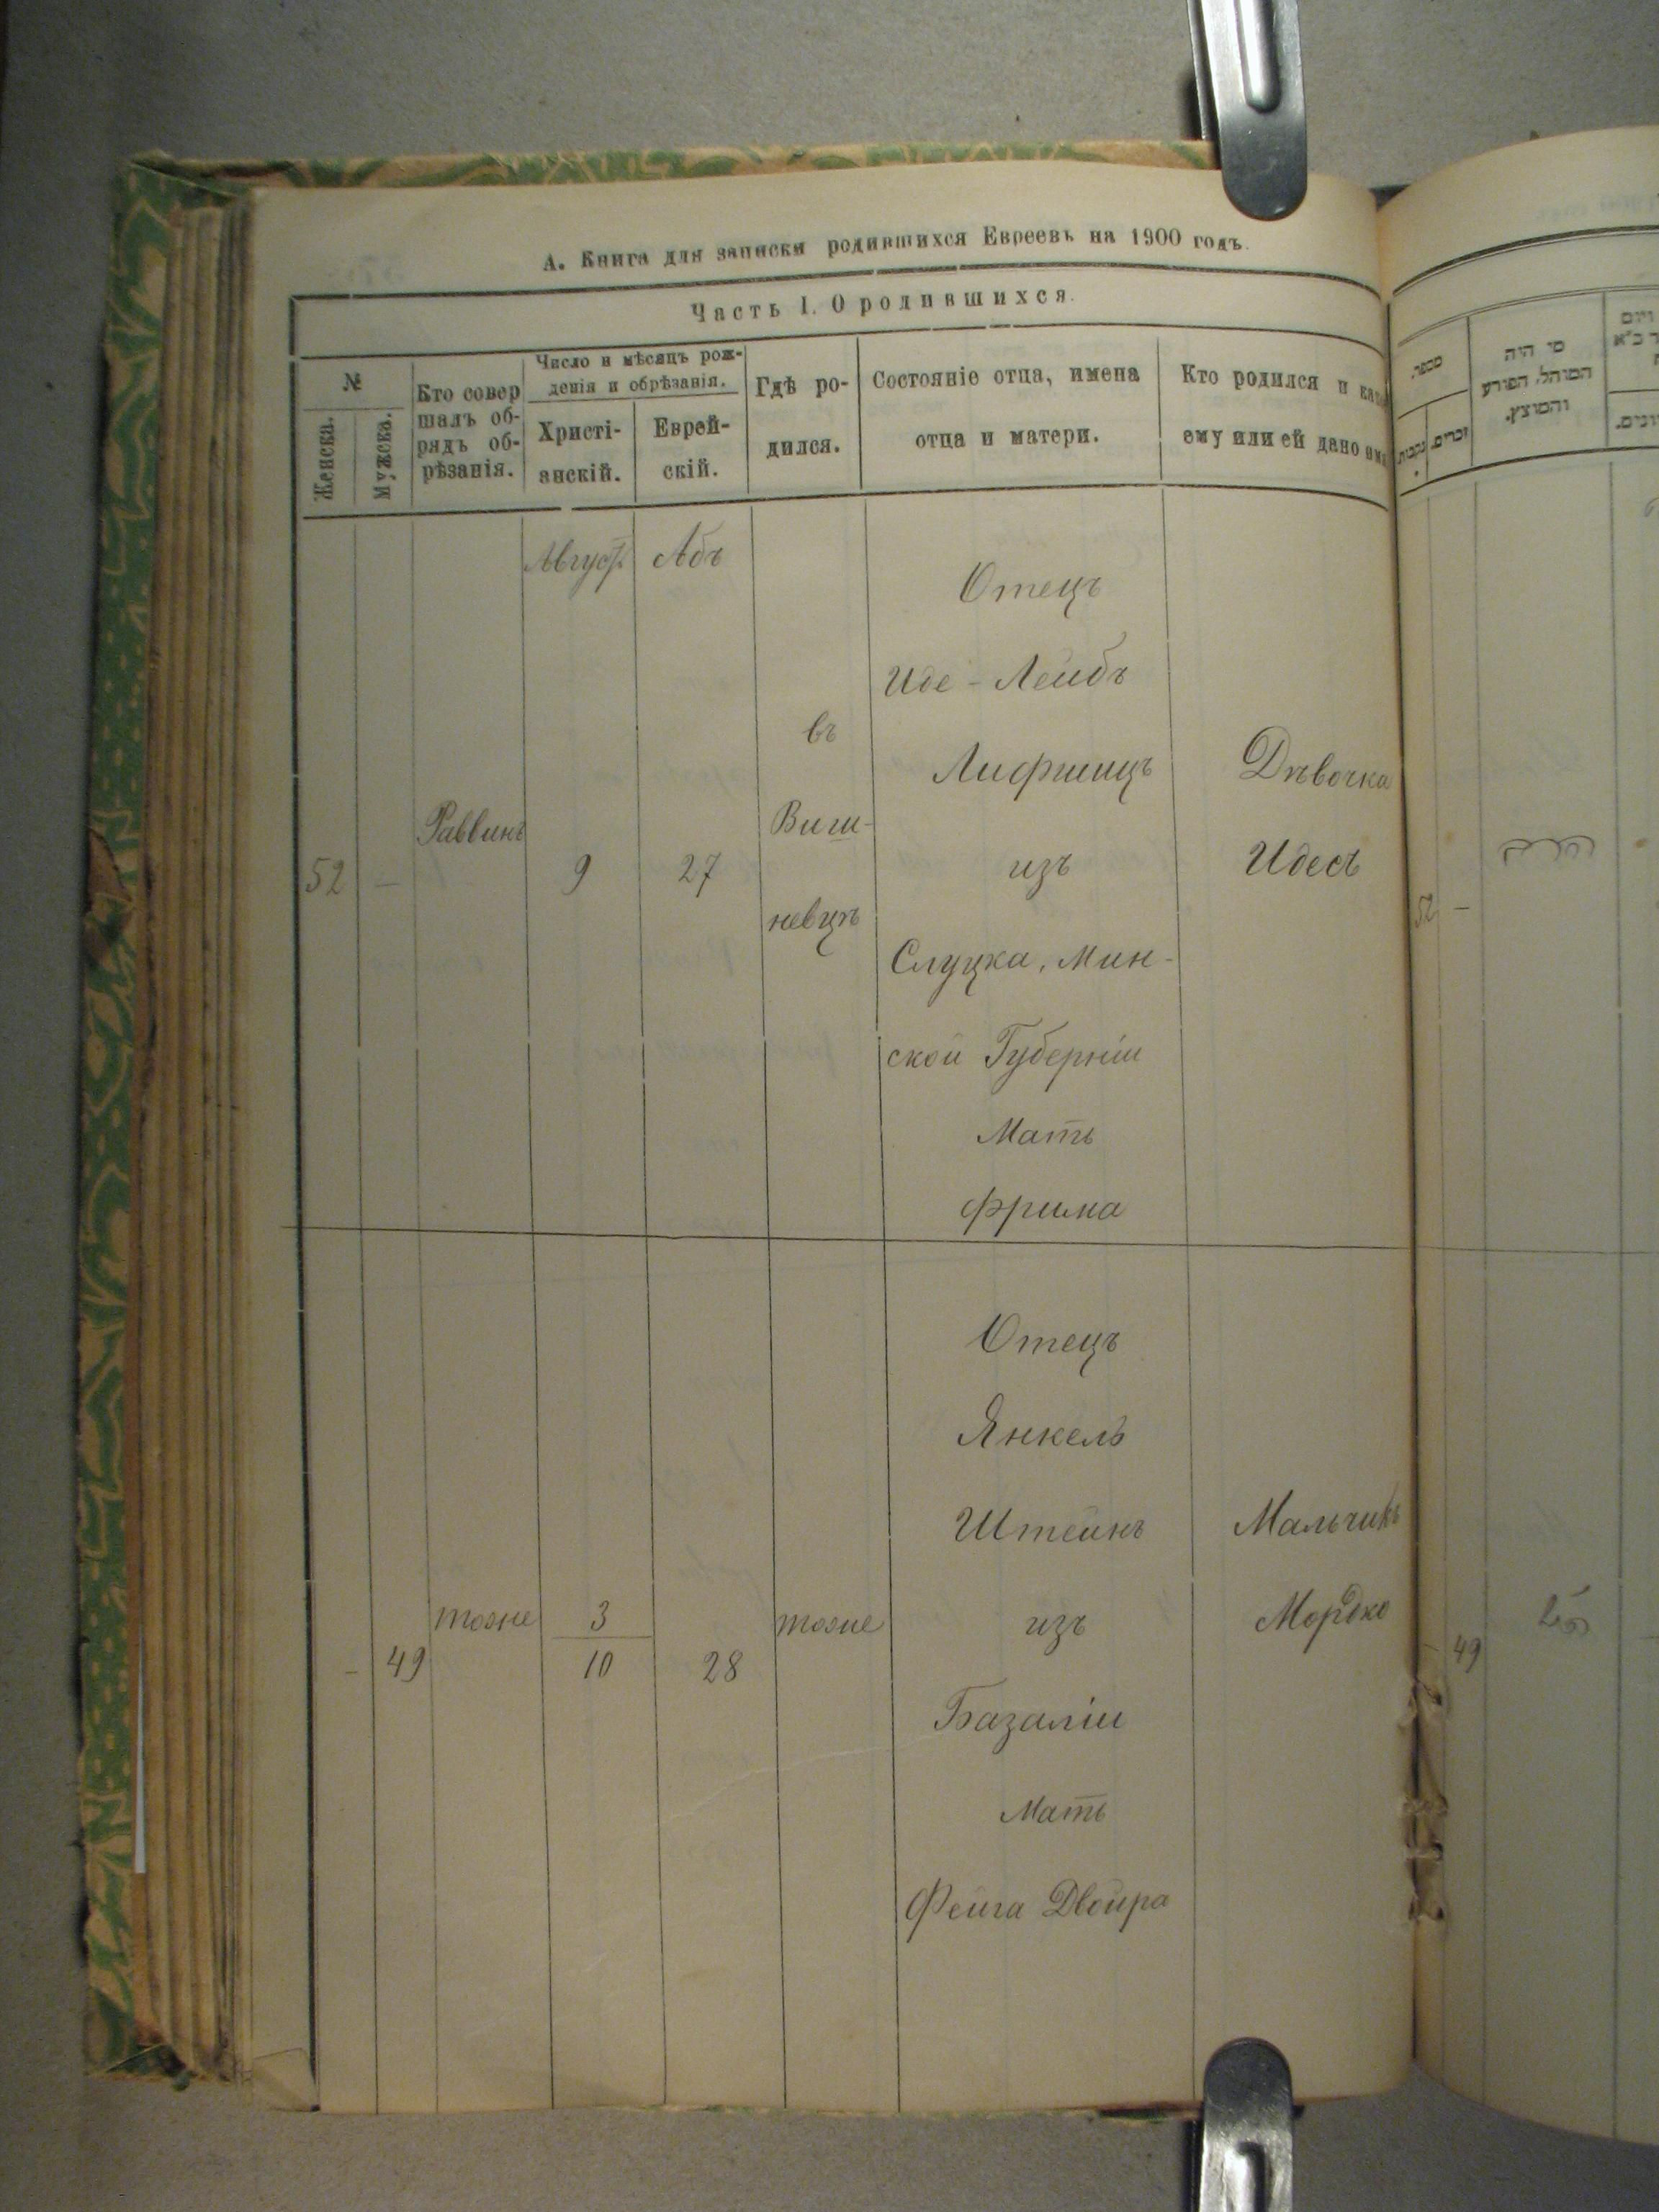 А. Книга для записки родившихся Евреевъ на 1900 годъ.
Часть I. О родившихся.
№
Женска.
Мужеска.
Кто совер
шалъ об-
рядъ об-
рѣзанія.
Число и мѣсяцъ рож-
денія и обрѣзанія.
Христі-
анскій.
Еврей-
скій.
Гдѣ ро-
дился.
Состояніе отца, имена
отца и матери.
Кто родился и как
ему или ей дано им
מספר
נקבות
זכרים.
מי היה
המוהל, הפורע
והמוצץ.
52
—
Раввинъ
Август
9
Абъ
27
въ
Виш-
невцѣ
Отецъ
Иде - Лейбъ
Лифшицъ
изъ
Слуцка, Мин-
ской Губерніи
Мать
Фрима
Дѣвочка
Идесъ
52
—
-
49
тоже
3
10
28
тоже
Отецъ
Янкель
Штейнъ
изъ
Базаліи
Мать
Фейга Двойра
Мальчикъ
Мордко
-
49